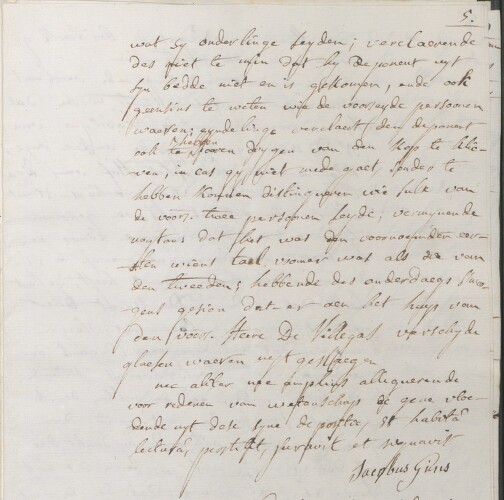 5.
wat sy onderlinge seyden; verclaerende
des niet te min dat hy deponent uyt
syn bedde niet en is gekomen, ende ook
geensins te weten wie de voorseyde persoonen
waeren; eyndelinge verclaert den deponent
ook te hebben hooren dygen van den kop te klie-
ven, in cas gy niet mede gaet sonder te
hebben konnen distingueren wie sulx van
de voors. twee persoonen seyde; vermynende
nogtans dat het was den voornoemden eer-
sten wiens tael vromer was als die van
den tweeden; hebbende des onderdaegs
gesien dat er aen het huys van
den voors. Heere De Villegas verscheyde
glaesen waeren uyt geslaegen
nec aliter nec amplius allegerende
voor redenen van wetenschap de gene vloe-
deende uyt dese syne depositie, et habita
lectura, perstitit, juravit et signavit
Jacobus